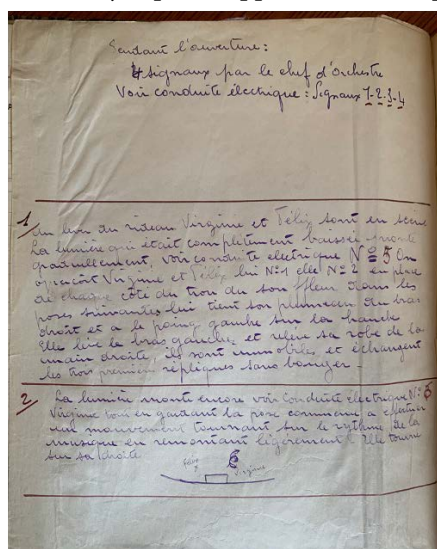 Pendant l'ouverture:
4 signaux par le chef d'Orchestre
Voir conduite électrique: Signaux 1-2-3-4
1/ Au lever du rideau Virginie et Félix sont en scène
La lumière qui était complètement baissée monte
graduellement, voir conduite électrique N° 5 On
aperçoit Virginie et Félix lui N°1 elle N°2 en place
de chaque côté du trou du souffleur dans les
poses suivantes lui tient son plumeau du bras
droit et a le poing gauche sur la hanche
Elle lève le bras gauche et relève sa robe de la
main droite, ils sont immobiles et échangent
les trois premières répliques sans bouger.
2/ La lumière monte encore voir conduite électrique N° 6
Virginie tout en gardant la pose commence a effectuer
un mouvement tournant sur le rythme de la
musique en remontant légèrement Elle tourne
sur sa droite
Félix
Virginie